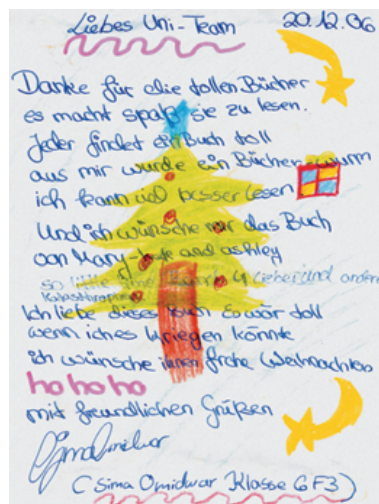 Liebes Uni-Team 20.12.06
Danke für die tollen Bücher
es macht spaß sie zu lesen.
Jeder findet ein Buch toll
aus mir wurde ein Bücherwurm
ich kann viel besser lesen
Und ich wünsche mir das Buch
von Mary-Kate and ashley
so little time Lieber und andere
Katastrophen
Ich liebe dieses Buch Es wär toll
wenn ich es kriegen könnte
ich wünsche ihnen frohe Weihnachten
hohoho
mit freundlichen Grüßen
(Sima Omidwar Klasse 6F3)